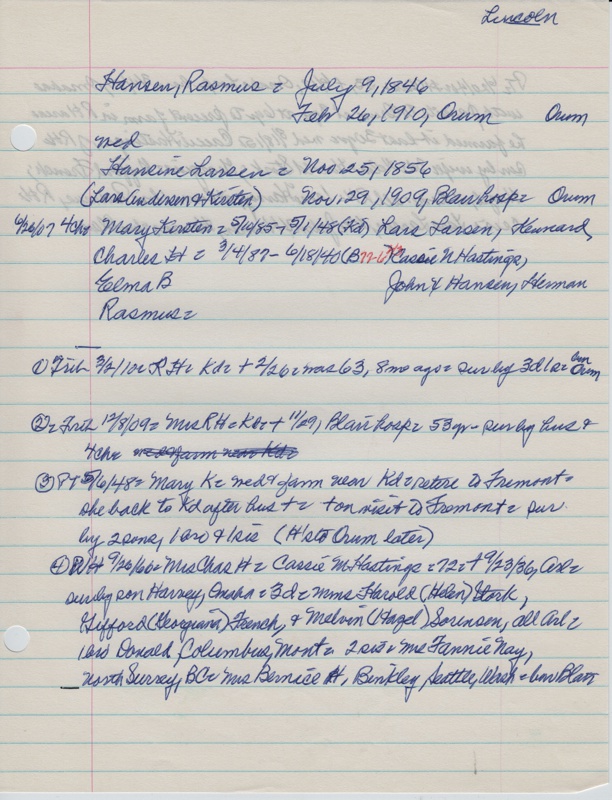 Lincoln
Hansen, Rasmus = July 9, 1846
Feb. 26, 1910, Orum Orum
med
Hansine Larsen = Nov 25, 1856
(Lars Andersen & Kirsten) Nov. 29, 1909, Blair hosp = Orum
4 Ch = Mary Kirsten = 5/10/85 - 5/1/48 (Kd) Lars Larsen, Kennard,
Charles H = 3/4/87 - 6/18/40 (B Cassie N Hastings,
Elma B John X Hansen, Herman
Rasmus =
① Trib 3/2/10 = RH = Kd = + 2/26 = was 63, 8 mo ago = sur by 3d 1s = bur Orum
② = Trib 12/8/09 = Mrs RH = Kd = + 11/29, Blair hosp = 53 yr - sur by hus &
4 ch = med & farm near Kd =
③ PT 5/6/48 = Mary K = med & farm near Kd = retire to Fremont =
she back to Kd after hus + = + on visit to Fremont = sur
by 2 sons, 1 bro & 1 sis (H's to Orum later)
④ 9/26/60 = Mrs Chas H = Cassie M Hastings = 72 = + 9/23/36, Arl =
sur by son Harvey, Omaha = 3d = Mms Harold (Helen) Stork,
Gifford (Georgiana) French, & Melvin (Hazel) Sorensen, all Arl =
1 bro Donald, Columbus, Mont = 2 sis = Mrs Fannie Nay,
North Surrey, BC = Mrs Bernice H. Binkley, Seattle, Wash = bur Blair